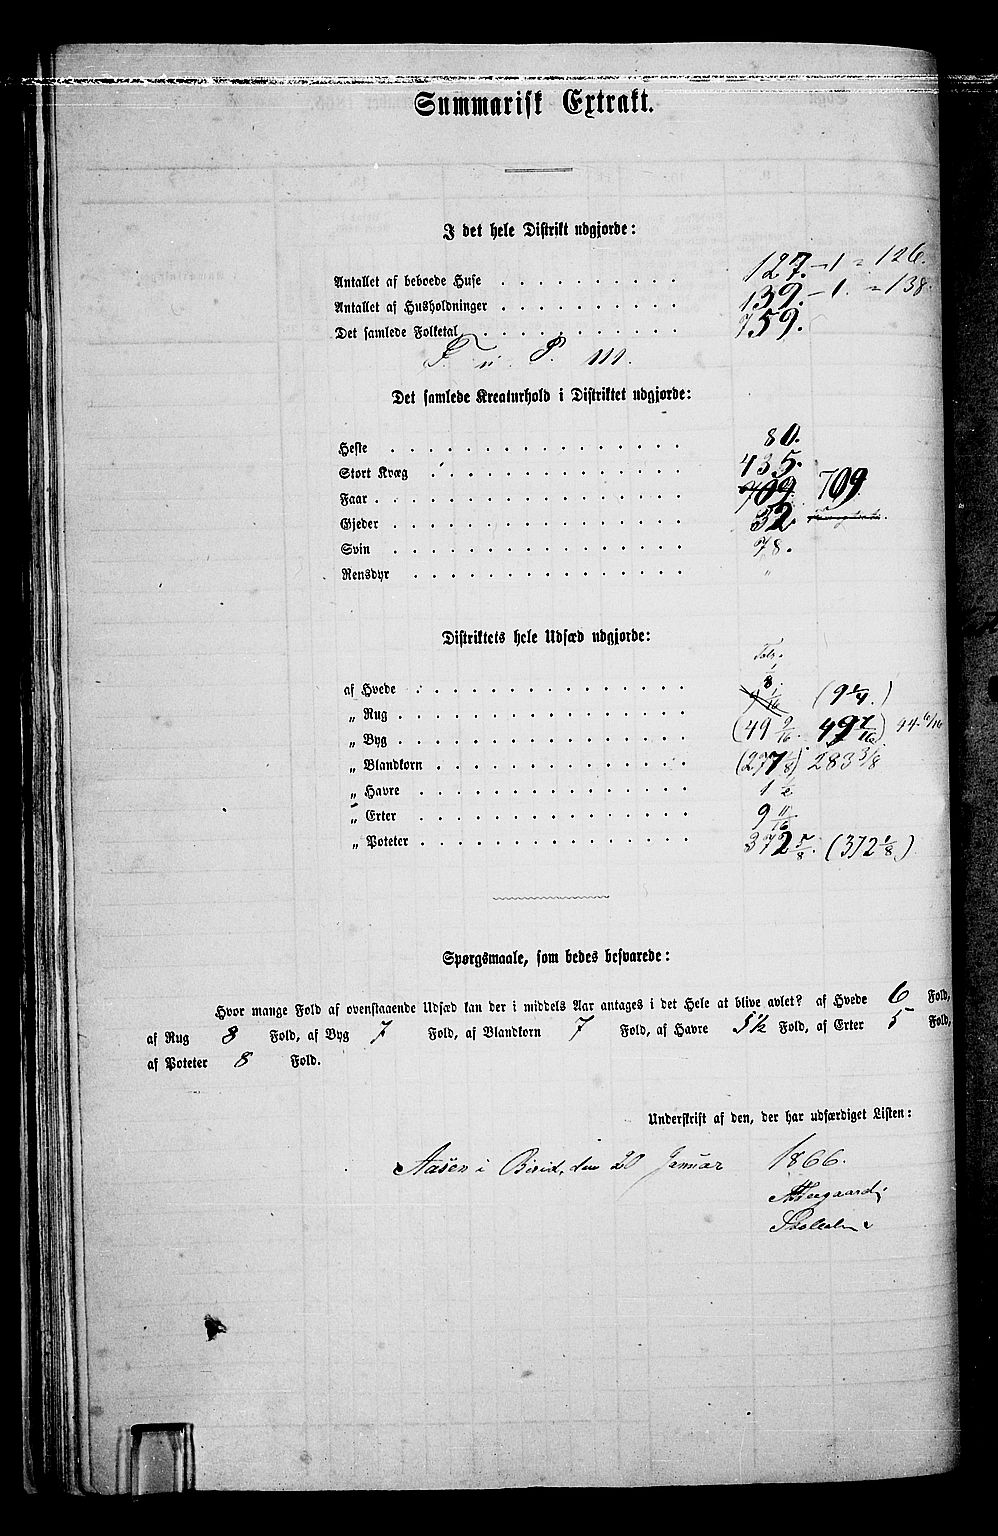 Summarisk Extrakt.
I det hele Distrikt udgjorde:
Antallet af beboede Huse . . . . . . . . . . 127. – 1 = 126.
Antallet af Husholdninger . . . . . . . . . . 139. – 1. = 138.
Det samlede Folketal . . . . . . . . . . 759.
Det samlede Kreaturhold i Distriktet udgjorde:
Heste . . . . . . . . . . 80.
Stort Kvæg . . . . . . . . . . 435.
Faar . . . . . . . . . . 709 709
Gjeder . . . . . . . . . . 32
Svin . . . . . . . . . . 78.
Rensdyr . . . . . . . . . . "
Distriktets hele Udsæd udgjorde:
af Hvede . . . . . . . . . . 1/8.
„ Rug . . . . . . . . . . (9 1/4.)
„ Byg . . . . . . . . . . (49 9/16. 49 7/16) 44 6/16
„ Blandkorn . . . . . . . . . . (277 1/8) 283 3/8
„ Havre . . . . . . . . . . 1 1/2
„ Erter . . . . . . . . . . 9 11/16.
„ Poteter . . . . . . . . . . 372 5/8. (372 1/8)
Spørgsmaale, som bedes besvarede:
Hvor mange Fold af ovenstaaende Udsæd kan der i middels Aar antages i det Hele at blive avlet? af Hvede 6 Fold,
af Rug 8 Fold, af Byg 7 Fold, af Blandkorn 7 Fold, af Havre 5½ Fold, af Erter 5 Fold,
af Poteter 8 Fold.
Underskrift af den, der har udfærdiget Listen:
Aasen i Birid, den 20 Januar 1866.